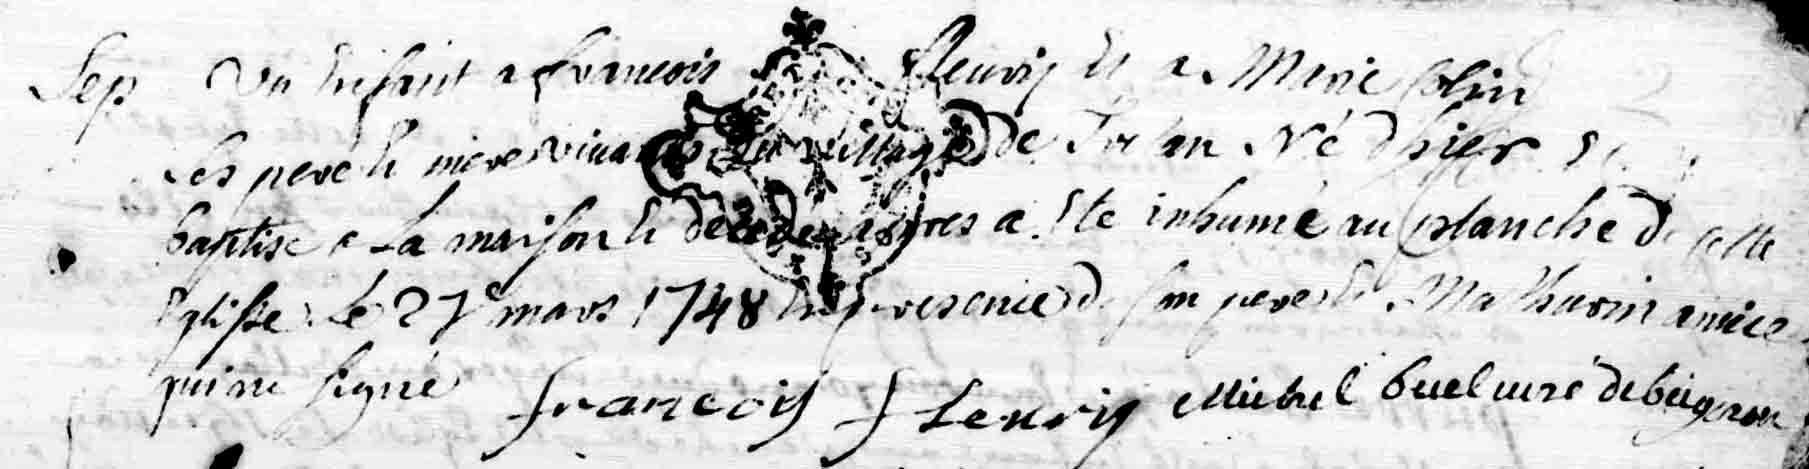 Sep Un Enfant a francois fleurij et a Marie Colin
ses pere et mere vivants du village de né d'hier
baptise a La maison et decede apres a Ete inhumé au planché de cette
Eglisse Le 27e mars 1748 En presence de son pere et Mathurin
qui ne signe francois fleurij Michel curé de